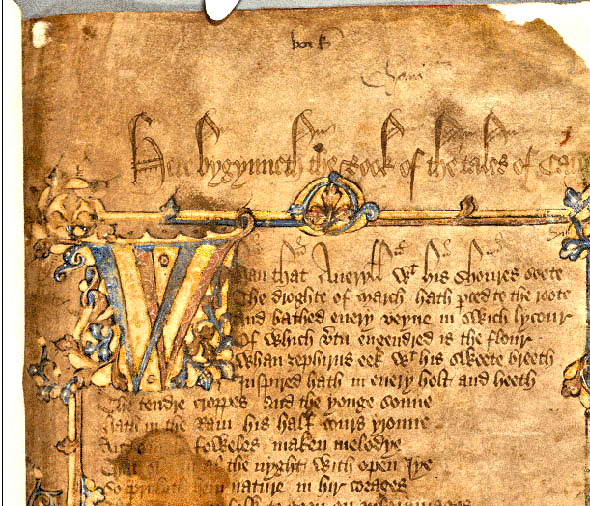 Here bygynneth the Book of the tales of Cau
Whan that Aueryll wt his shoures soote
The droghte of march hath pced to the roote
And bathed euery veyne in swich lycour
Of which vtu engendred is the flour
Whan zephirus eek wt his sweete breeth
Inspired hath in euery holt and heeth
The tendre croppes and the yonge sonne
Hath in the Ram his half cours yronne
And foweles maken melodye
That the nyght with open Iye
So priketh hem nature in hir corages
folk to goon on pilgrymages